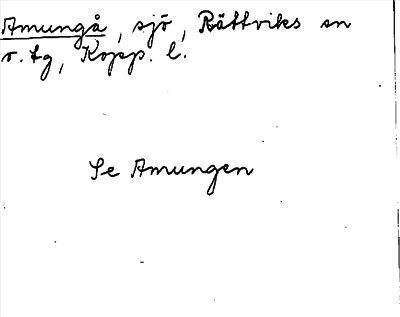 Amungå, sjö, Rättviks sn
o. tg, Kopp. l.
Se Amungen